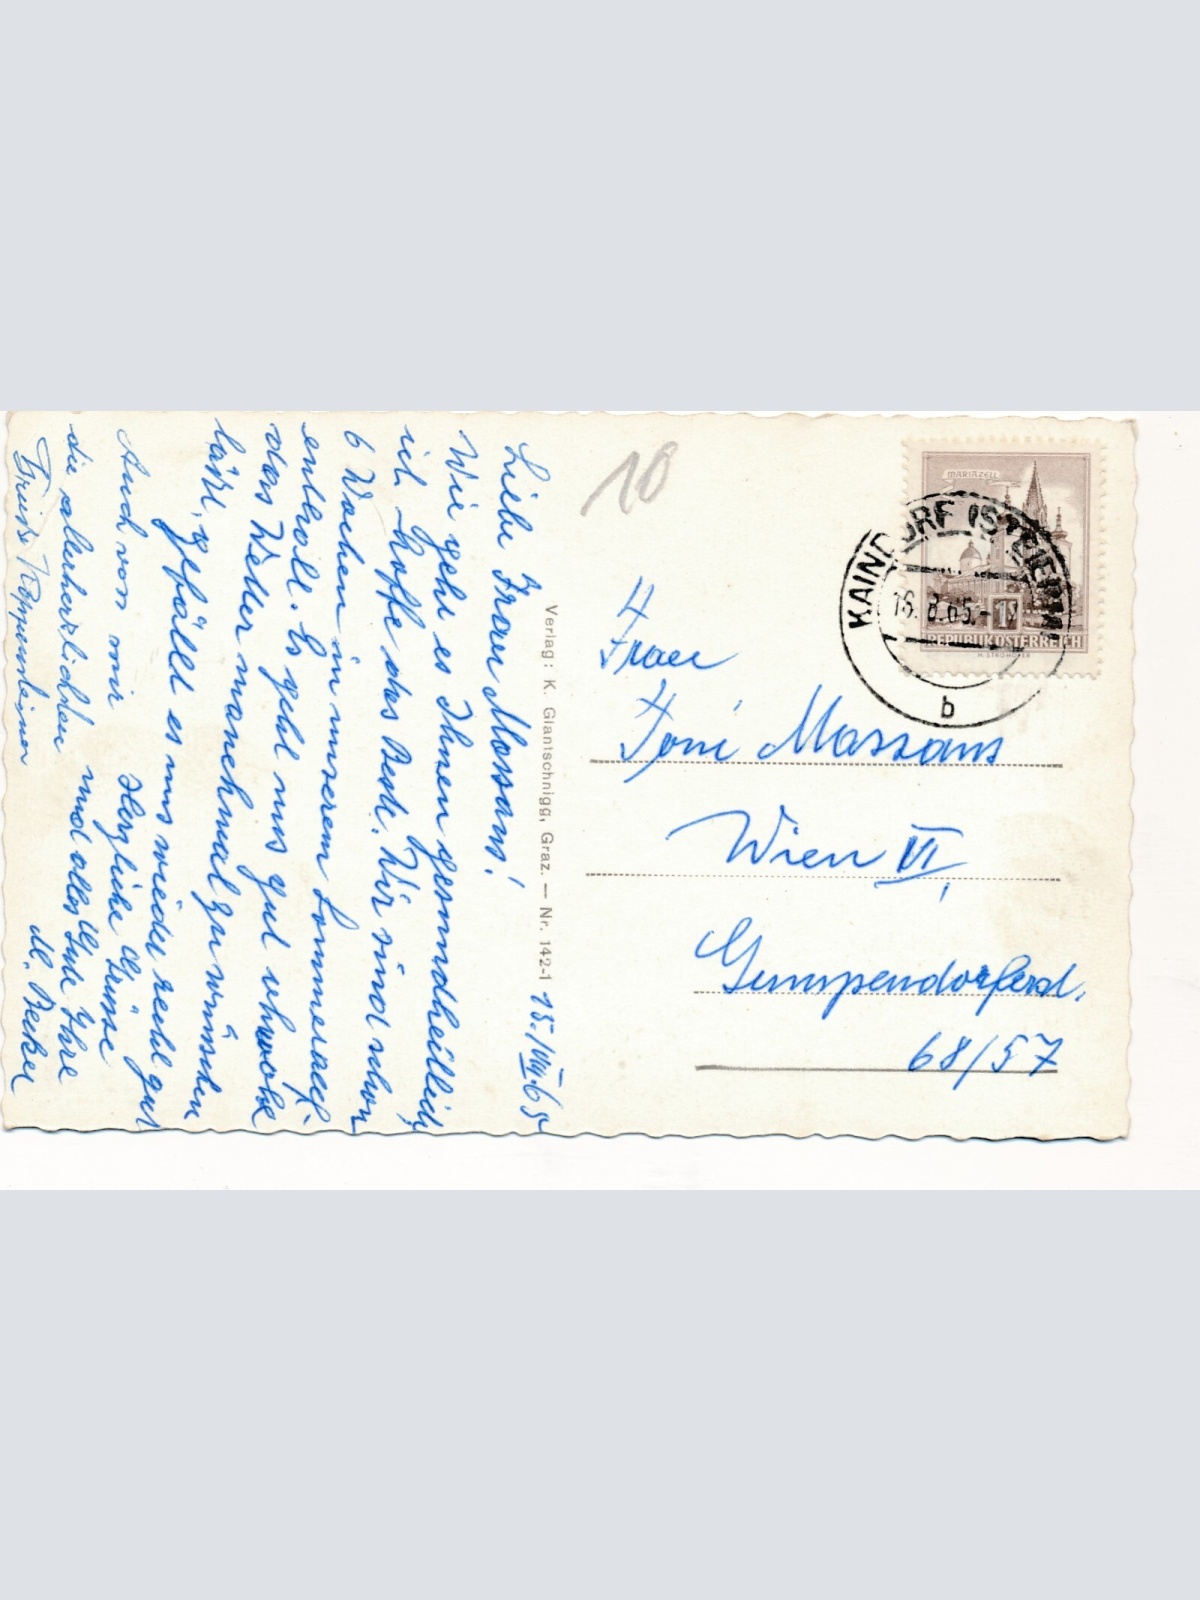 15./VIII. 65
Liebe Frau Massans!
Wie geht es Ihnen gesundheitlich,
ich hoffe das Beste. Wir sind schon
6 Wochen in unserem Sommerauf-
enthalt. Es geht uns gut obwohl
das Wetter manchmal zu wünschen
läßt, gefällt es uns wieder recht gut
Auch von mir Herzliche Grüsse
die allerherzlichsten und alles Gute Ihre
Grüße M. Becker
Verlag: K. Glantschnigg, Graz. — Nr. 142-1
10
MARIAZELL
1S
REPUBLIK ÖSTERREICH
KAINDORF (STEIERM
16. 8. 65.-
b
Frau
Toni Massans
Wien VI.
Gumpendorferst.
68/57